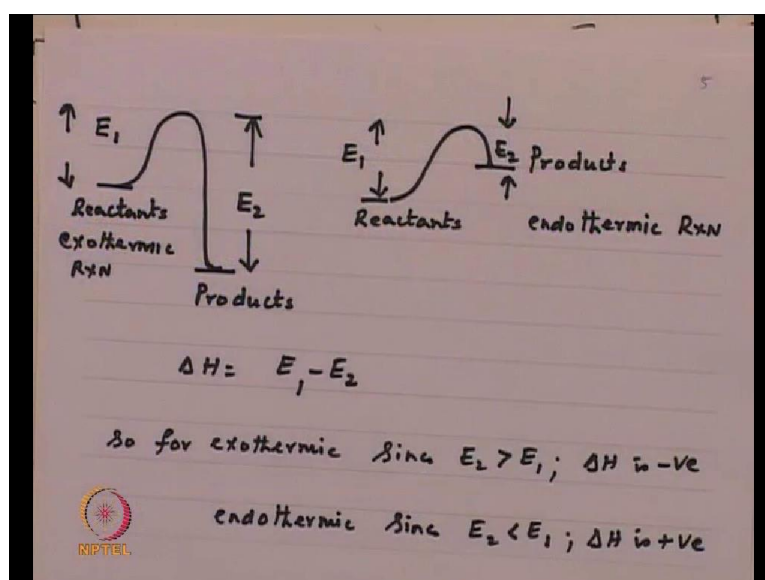 5
E1
Reactants
exothermic
RxN
E2
Products
E1
Reactants
E2 Products
endothermic RxN
ΔH = E1 - E2
So for exothermic Sinc E2 > E1; ΔH is -ve
endothermic Sinc E2 < E1; ΔH is +ve
NPTEL